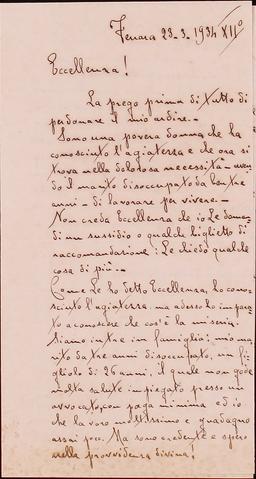 Ferrara 23-3-1934 XII°
Eccellenza!
La prego prima di tutto di
perdonare il mio ardire.-
Sono una povera donna che ha
conosciuto l'agiatezza e che ora si
trova nella dolorosa necessità - aven
do il marito disoccupato da ben tre
anni - di lavorare per vivere.-
Non creda Eccellenza che io Le doman
di un sussidio o qualche biglietto di
raccomandazione: Le chiedo qualche
cosa di più.-
Come Le ho detto Eccellenza, ho cono-
sciuto l'agiatezza, ma adesso ho impara
to a conoscere che cos'è la miseria.
Siamo in tre in famiglia: mio ma
rito da tre anni disoccupato, un fi
gliolo di 26 anni, il quale non gode
molta salute impiegato presso un
avvocato, con paga minima ed io
che lavoro moltissimo e guadagno
assai poco. Ma sono credente e spero
nella provvidenza divina!